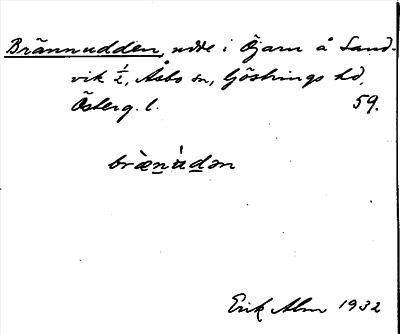 Brännudden, udde i Öjarn å Sand-
vik ½, Åsbo sn, Göstrings hd,
Österg. l. 59.
bræ̀nu̇́dən
Erik Alm 1932